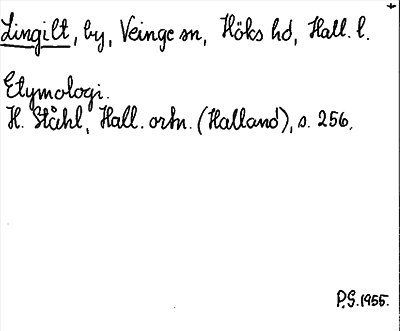 Lingilt, by, Veinge sn, Höks hd, Hall. l.
Etymologi.
H. Ståhl, Hall. ortn. (Halland), s. 256.
P.G. 1955.